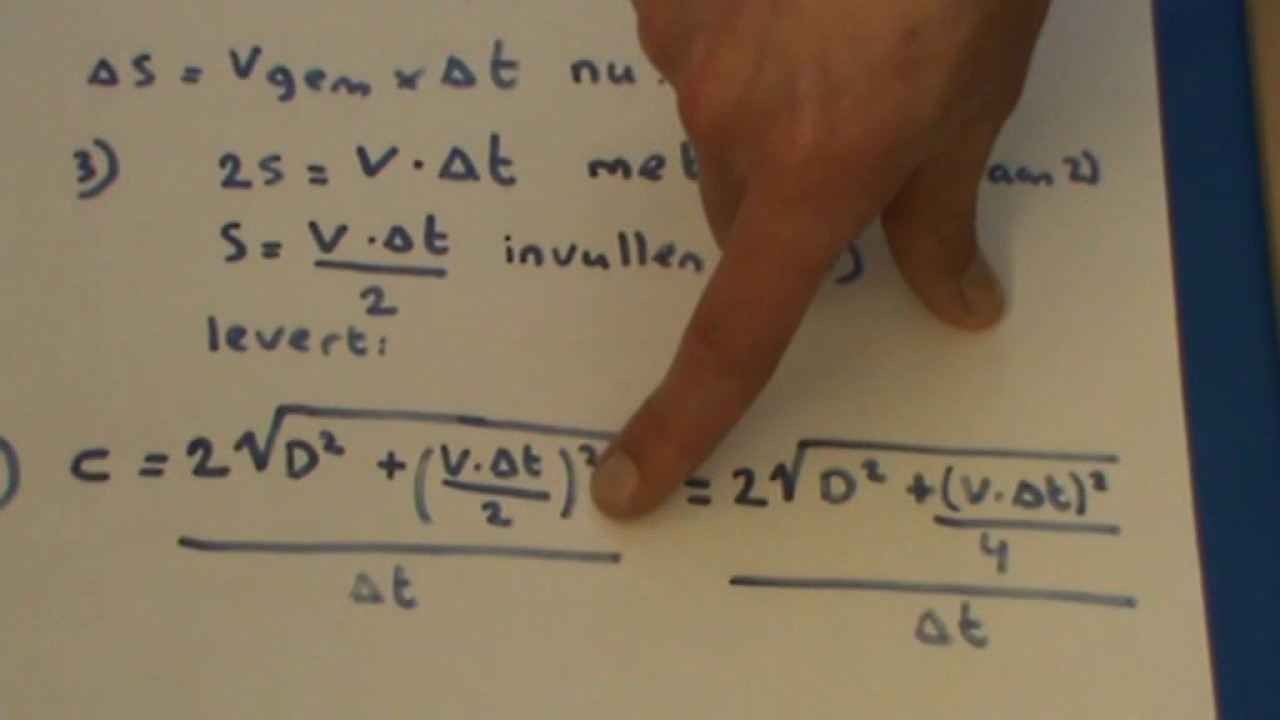 Δs = Vgem × Δt nu
3) 2s = V · Δt met aan 2)
S = V · Δt / 2 invullen )
levert:
) c = 2√(D² + (V·Δt / 2)²) / Δt = 2√(D² + (V·Δt)² / 4) / Δt